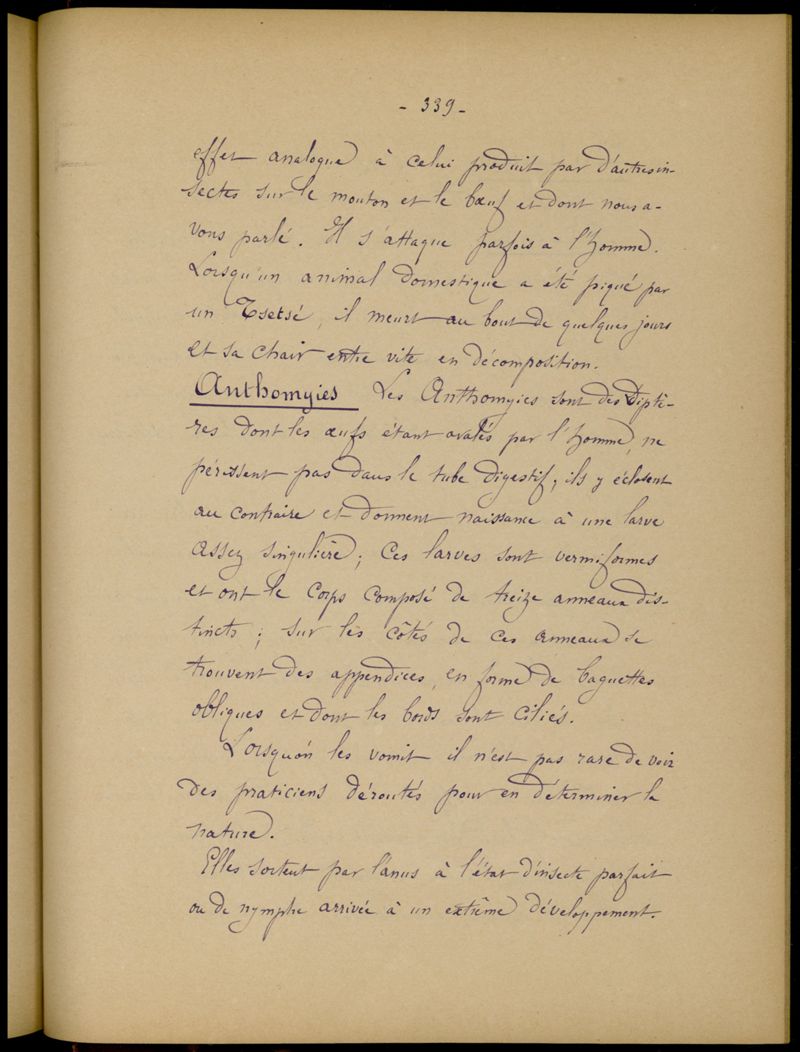 - 339 -
effet analogue à celui produit par d'autres in-
sectes sur le mouton et le bœuf et dont nous a-
vons parlé. Il s'attaque parfois à l'homme.
Lorsqu'un animal domestique a été piqué par
un Tsetsé, il meurt au bout de quelques jours
et sa chair entre vite en décomposition.
Anthomyies Les Anthomyies sont des Diptè-
res dont les œufs étant avalés par l'homme, ne
périssent pas dans le tube digestif, ils y éclosent
au contraire et donnent naissance à une larve
assez singulière; ces larves sont vermiformes
et ont le corps composé de treize anneaux dis-
tincts; sur les côtés de ces anneaux se
trouvent des appendices, en forme de baguettes
obliques et dont les bords sont ciliés.
Lorsqu'on les vomit il n'est pas rare de voir
des praticiens déroutés pour en déterminer la
nature.
Elles sortent par l'anus à l'état d'insecte parfait
ou de nymphe arrivée à un extrême développement.